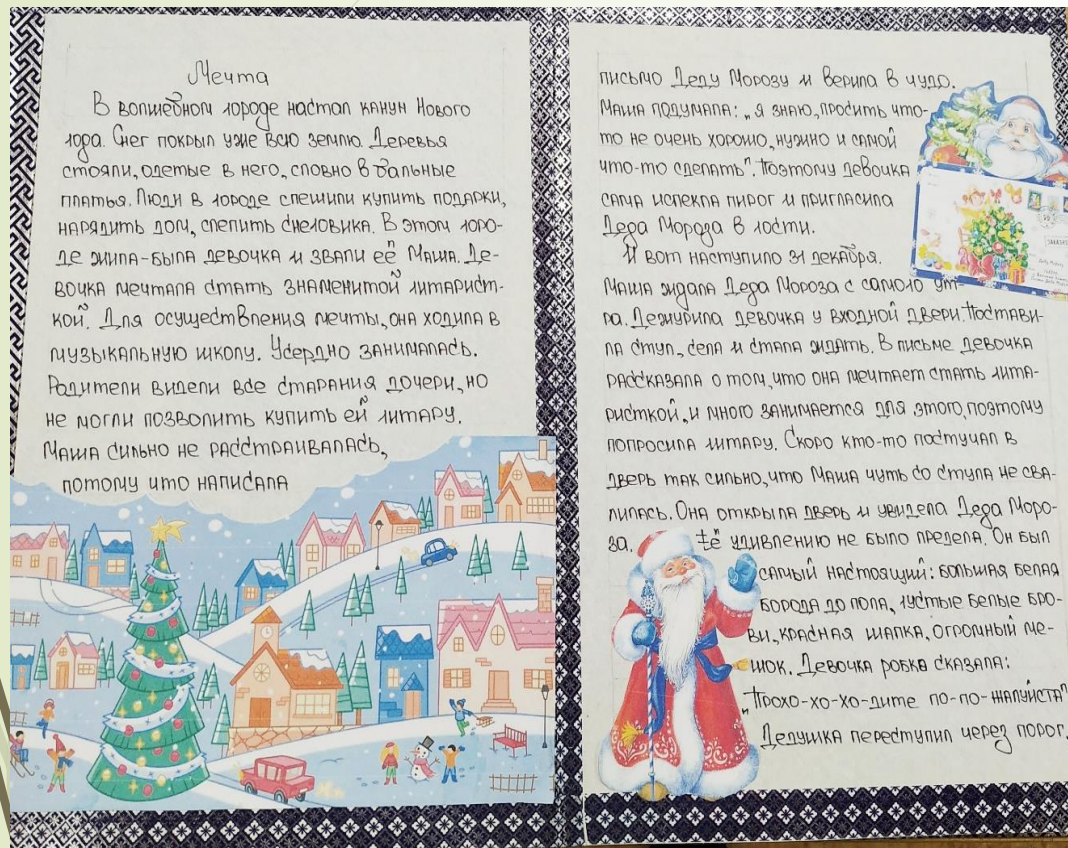 Мечта
В волшебном городе настал канун Нового
года. Снег покрыл уже всю землю. Деревья
стояли, одетые в него, словно в бальные
платья. Люди в городе спешили купить подарки,
нарядить дом, слепить снеговика. В этом горо-
де жила-была девочка и звали её Маша. Де-
вочка мечтала стать знаменитой гитарист-
кой. Для осуществления мечты, она ходила в
музыкальную школу. Усердно занималась.
Родители видели все старания дочери, но
не могли позволить купить ей гитару.
Маша сильно не расстраивалась,
потому что написала
письмо Деду Морозу и верила в чудо.
Маша подумала: „я знаю, просить что-
то не очень хорошо, нужно и самой
что-то сделать". Поэтому девочка
сама испекла пирог и пригласила
Деда Мороза в гости.
И вот наступило 31 декабря.
Маша ждала Деда Мороза с самого ут-
ра. Дежурила девочка у входной двери. Постави-
ла стул, села и стала ждать. В письме девочка
рассказала о том, что она мечтает стать гита-
ристкой, и много занимается для этого, поэтому
попросила гитару. Скоро кто-то постучал в
дверь так сильно, что Маша чуть со стула не сва-
лилась. Она открыла дверь и увидела Деда Моро-
за. Её удивлению не было предела. Он был
самый настоящий: большая белая
борода до пола, густые белые бро-
ви, красная шапка, огромный ме-
шок. Девочка робко сказала:
„Прохо-хо-хо-дите по-по-жалуйста"
Дедушка переступил через порог.